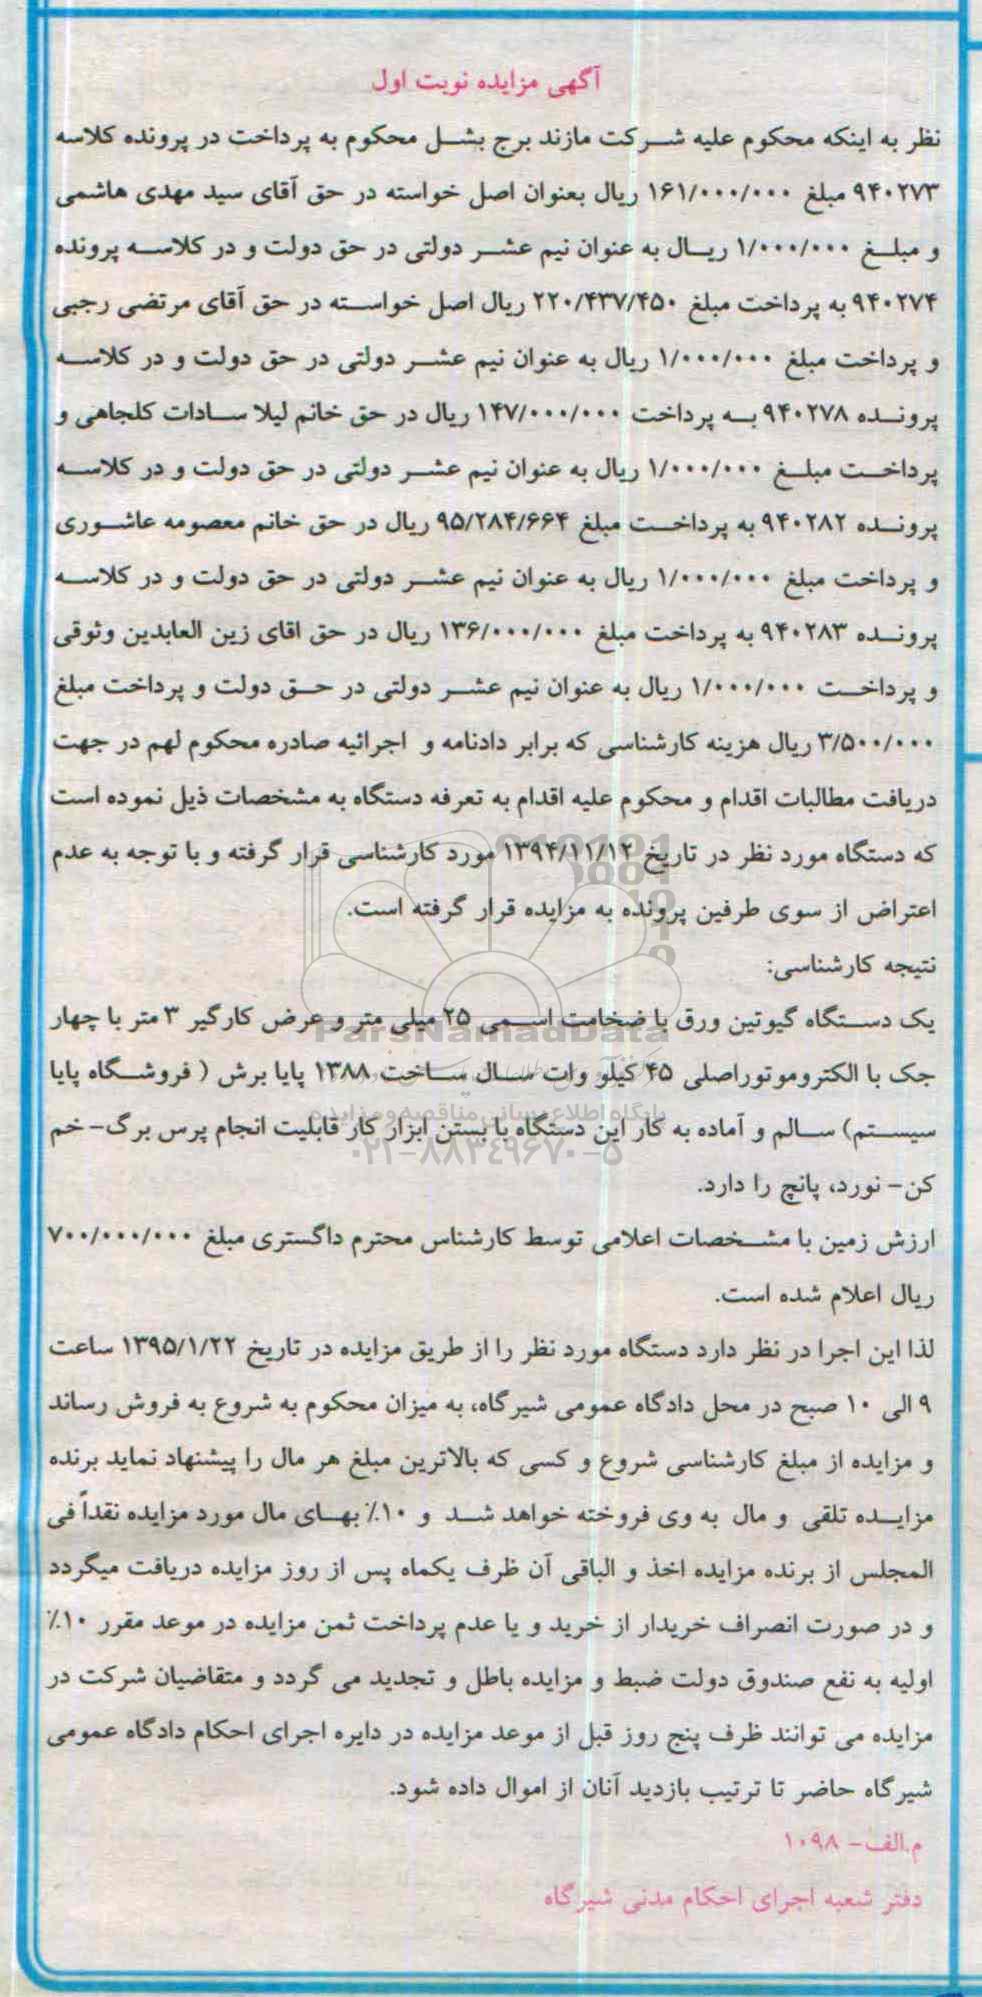 آگهی مزایده نوبت اول
نظر به اینکه محکوم علیه شرکت مازند برج بشل محکوم به پرداخت در پرونده کلاسه
۹۴۰۲۷۳ مبلغ ۱۶۱/۰۰۰/۰۰۰ ریال بعنوان اصل خواسته در حق آقای سید مهدی هاشمی
و مبلغ ۱/۰۰۰/۰۰۰ ریال به عنوان نیم عشر دولتی در حق دولت و در کلاسه پرونده
۹۴۰۲۷۴ به پرداخت مبلغ ۲۲۰/۴۳۷/۴۵۰ ریال اصل خواسته در حق آقای مرتضی رجبی
و پرداخت مبلغ ۱/۰۰۰/۰۰۰ ریال به عنوان نیم عشر دولتی در حق دولت و در کلاسه
پرونده ۹۴۰۲۷۸ به پرداخت ۱۴۷/۰۰۰/۰۰۰ ریال در حق خانم لیلا سادات کلجاهی و
پرداخت مبلغ ۱/۰۰۰/۰۰۰ ریال به عنوان نیم عشر دولتی در حق دولت و در کلاسه
پرونده ۹۴۰۲۸۲ به پرداخت مبلغ ۹۵/۲۸۴/۶۶۴ ریال در حق خانم معصومه عاشوری
و پرداخت مبلغ ۱/۰۰۰/۰۰۰ ریال به عنوان نیم عشر دولتی در حق دولت و در کلاسه
پرونده ۹۴۰۲۸۳ به پرداخت مبلغ ۱۳۶/۰۰۰/۰۰۰ ریال در حق اقای زین العابدین وثوقی
و پرداخت ۱/۰۰۰/۰۰۰ ریال به عنوان نیم عشر دولتی در حق دولت و پرداخت مبلغ
۳/۵۰۰/۰۰۰ ریال هزینه کارشناسی که برابر دادنامه و اجرائیه صادره محکوم لهم در جهت
دریافت مطالبات اقدام و محکوم علیه اقدام به تعرفه دستگاه به مشخصات ذیل نموده است
که دستگاه مورد نظر در تاریخ ۱۳۹۴/۱۱/۱۲ مورد کارشناسی قرار گرفته و با توجه به عدم
اعتراض از سوی طرفین پرونده به مزایده قرار گرفته است.
نتیجه کارشناسی:
یک دستگاه گیوتین ورق با ضخامت اسمی ۲۵ میلی متر و عرض کارگیر ۳ متر با چهار
ParsNamadData
جک با الکتروموتوراصلی ۴۵ کیلو وات سال ساخت ۱۳۸۸ پایا برش ( فروشگاه پایا
پایگاه اطلاع رسانی مناقصه و مزایده
سیستم) سالم و آماده به کار این دستگاه با بستن ابزار کار قابلیت انجام پرس برگ- خم
۰۲۱-۸۸۳۴۹۶۷۰-۵
کن- نورد، پانچ را دارد.
ارزش زمین با مشخصات اعلامی توسط کارشناس محترم داگستری مبلغ ۷۰۰/۰۰۰/۰۰۰
ریال اعلام شده است.
لذا این اجرا در نظر دارد دستگاه مورد نظر را از طریق مزایده در تاریخ ۱۳۹۵/۱/۲۲ ساعت
۹ الی ۱۰ صبح در محل دادگاه عمومی شیرگاه، به میزان محکوم به شروع به فروش رساند
و مزایده از مبلغ کارشناسی شروع و کسی که بالاترین مبلغ هر مال را پیشنهاد نماید برنده
مزایده تلقی و مال به وی فروخته خواهد شد و ۱۰٪ بهای مال مورد مزایده نقداً فی
المجلس از برنده مزایده اخذ و الباقی آن ظرف یکماه پس از روز مزایده دریافت میگردد
و در صورت انصراف خریدار از خرید و یا عدم پرداخت ثمن مزایده در موعد مقرر ۱۰٪
اولیه به نفع صندوق دولت ضبط و مزایده باطل و تجدید می گردد و متقاضیان شرکت در
مزایده می توانند ظرف پنج روز قبل از موعد مزایده در دایره اجرای احکام دادگاه عمومی
شیرگاه حاضر تا ترتیب بازدید آنان از اموال داده شود.
م.الف- ۱۰۹۸
دفتر شعبه اجرای احکام مدنی شیرگاه